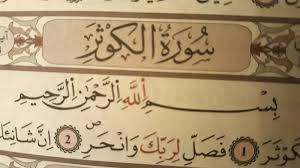 سُورَةُ الْكَوْثَرِ
بِسْمِ اللَّهِ الرَّحْمَٰنِ الرَّحِيمِ
1 فَصَلِّ لِرَبِّكَ وَانْحَرْ 2 إِنَّ شَانِئَكَ